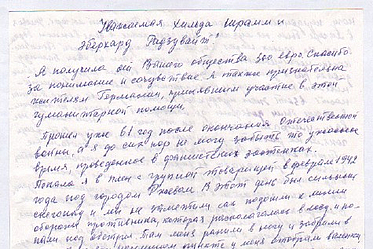 Уважаемая Хильда Шрамм и
Эберхард Радзувайт!
Я получила от Вашего общества 300 евро. Спасибо
за понимание и сочувствие. А также признательна
жителям Германии, принявшим участие в этой
гуманитарной помощи.
Прошел уже 61 год после окончания Отечественной
войны, а я до сих пор не могу забыть то ужасное
время, проведенное в фашистских застенках.
Попала я в плен с группой товарищей в феврале 1942
года под городом Ржевом. В этот день был сильный
снегопад и мы не заметили как подошли к линии
обороны противника, которая располагалась в лесу, и по-
пали под обстрел. Там меня ранили в ногу и забрали в
пункте и меня вторым